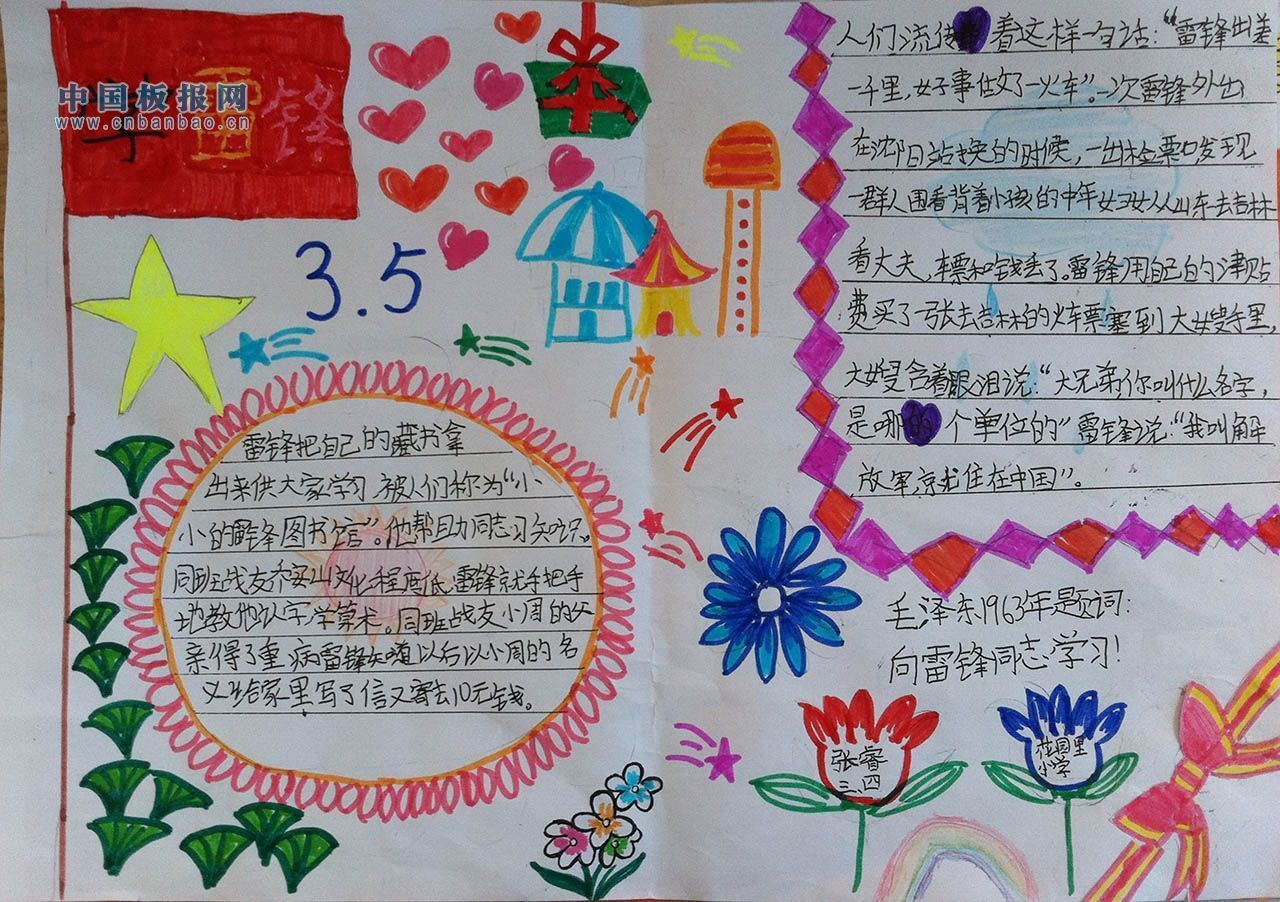 学雷锋
中国板报网
www.cnbanbao.cn
3.5
雷锋把自己的藏书拿
出来供大家学习,被人们称为“小
小的雷锋图书馆”。他帮助同志习知识。
同班战友乔安山文化程度低,雷锋就手把手
地教他认字学算术。同班战友小周的父
亲得了重病雷锋知道以后以小周的名
义给家里写了信又寄去10元钱。
人们流传着这样一句话:“雷锋出差
一千里,好事做了一火车”。一次雷锋外出
在沈阳站换的时候,一出检票口发现
一群人围看背着小孩的中年妇女从山东去吉林
看丈夫,车票和钱丢了。雷锋用自己的津贴
费买了一张去吉林的火车票塞到大嫂手里,
大嫂含着眼泪说:“大兄弟你叫什么名字,
是哪个单位的”雷锋说:“我叫解
放军,就住在中国”。
毛泽东1963年题词:
向雷锋同志学习!
张睿
三.四
花园里
小学